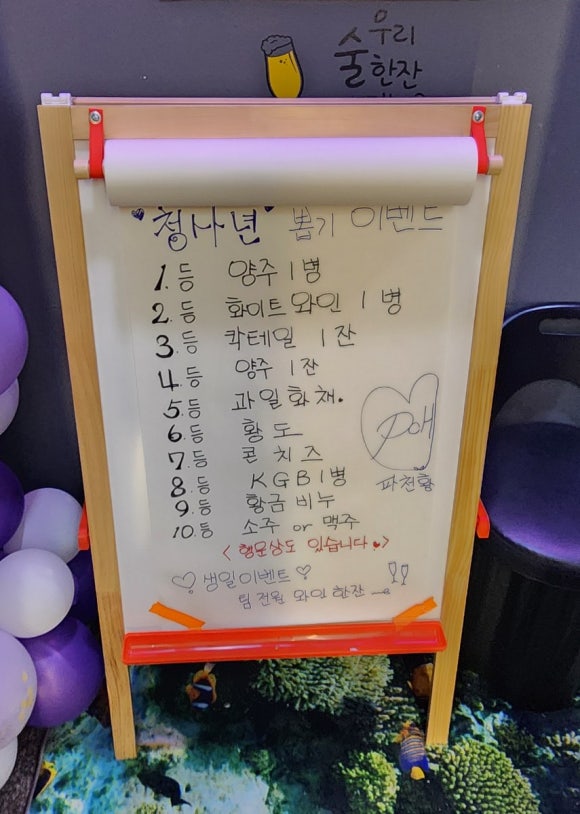 우리
술한잔
"청사년" 뽑기 이벤트
1.등 양주 1병
2.등 화이트 와인 1병
3.등 칵테일 1잔
4.등 양주 1잔
5.등 과일화채.
6.등 황도
7.등 콘치즈
8.등 KGB 1병
9.등 황금비누
10.등 소주 or 맥주
<행운상도 있습니다♥>
PCH
파천황
♡생일이벤트♡
팀전원 와인 한잔